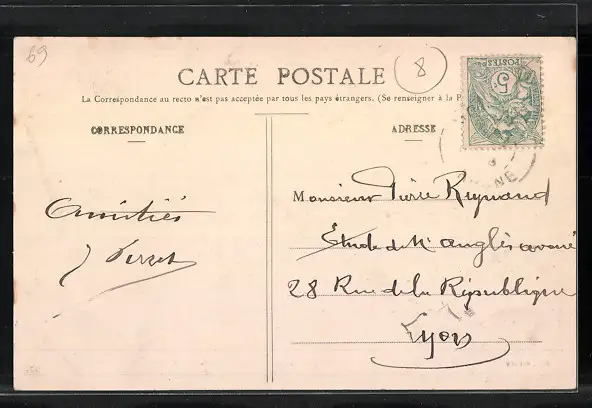 69
8
CARTE POSTALE
La Correspondance au recto n'est pas acceptée par tous les pays étrangers. (Se renseigner à la P
POSTES
5
CORRESPONDANCE
ADRESSE
Monsieur Pierre Reynaud
Amitiés
Étude de Me Anglès avoué
J Verset
28 Rue de la République
Lyon